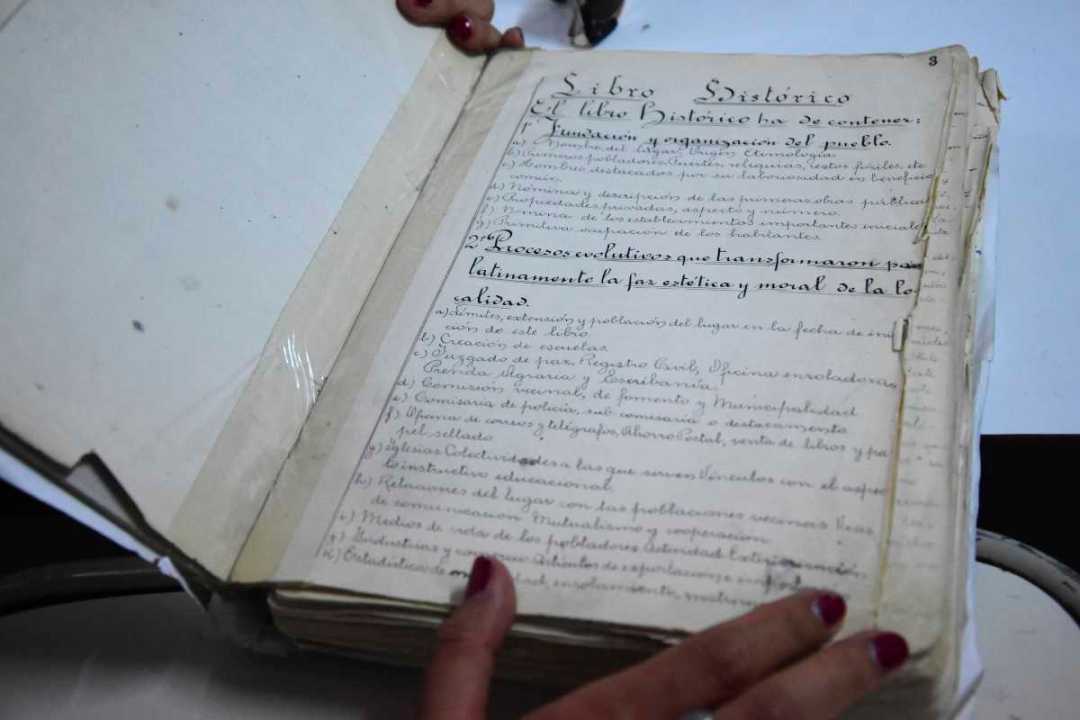 3
Libro Histórico
El libro Histórico ha de contener:
1º Fundación y organización del pueblo.
a) Nombre del lugar. Origen. Etimología.
b) Primeros pobladores. Fuertes, reliquias, restos fósiles, etc
c) Hombres destacados por su laboriosidad en beneficio
común.
d) Nómina y descripción de las primeras obras públicas
e) Propiedades privadas, aspecto y número.
f) Nómina de los establecimientos importantes iniciales
g) Primitiva ocupación de los habitantes.
2º Procesos evolutivos que transformaron pau
latinamente la faz estética y moral de la lo
calidad.
a) Límites, extensión y población del lugar en la fecha de inicia
ción de este libro.
b) Creación de escuelas.
c) Juzgado de paz, Registro Civil, Oficina enroladora,
Prenda Agraria y Escribanía.
d) Comisión vecinal, de fomento y Municipalidad
e) Comisaría de policía, sub comisaría o destacamento
f) Oficina de correos y telégrafos, Ahorro Postal, venta de libros y pa
pel sellado
g) Iglesias Colectividades a las que sirven Vínculos con el aspec
to instructivo educacional.
h) Relaciones del lugar con las poblaciones vecinas Vías
de comunicación Mutualismo y cooperación
i) Medios de vida de los pobladores Actividad
j) Industrias y Artículos de exportación e
k) Estadística de enrolamiento,